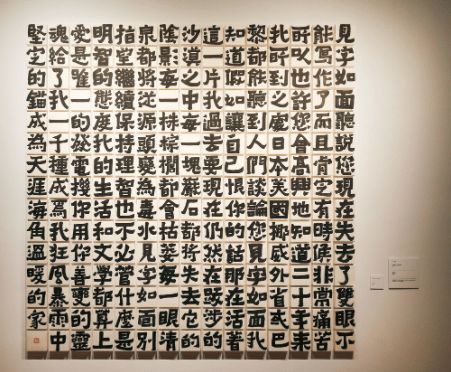 見字如面聽說您現在失去了雙眼不
能寫作了而且有時候非常痛苦
所以也許您會高興地知道二十年來
我所到之處日本美國挪威外省或巴
黎都能聽到人們談論您見字如面我
知道假如讓自己恨你的話那在活著
這一片我過去要現在仍然在跋涉的
沙漠之中每一塊巖石都將失去它的
陰影每一株棕櫚都會枯萎每一眼清
泉都將從源頭變為毒水見字如面別
指望繼續保持理智也不必管什麼是
明智的態度我的生活和文學都算上
愛是唯一的你用你善的靈
魂給了我一千種成為我狂風暴雨中
堅定的錨成為天涯海角溫暖的家